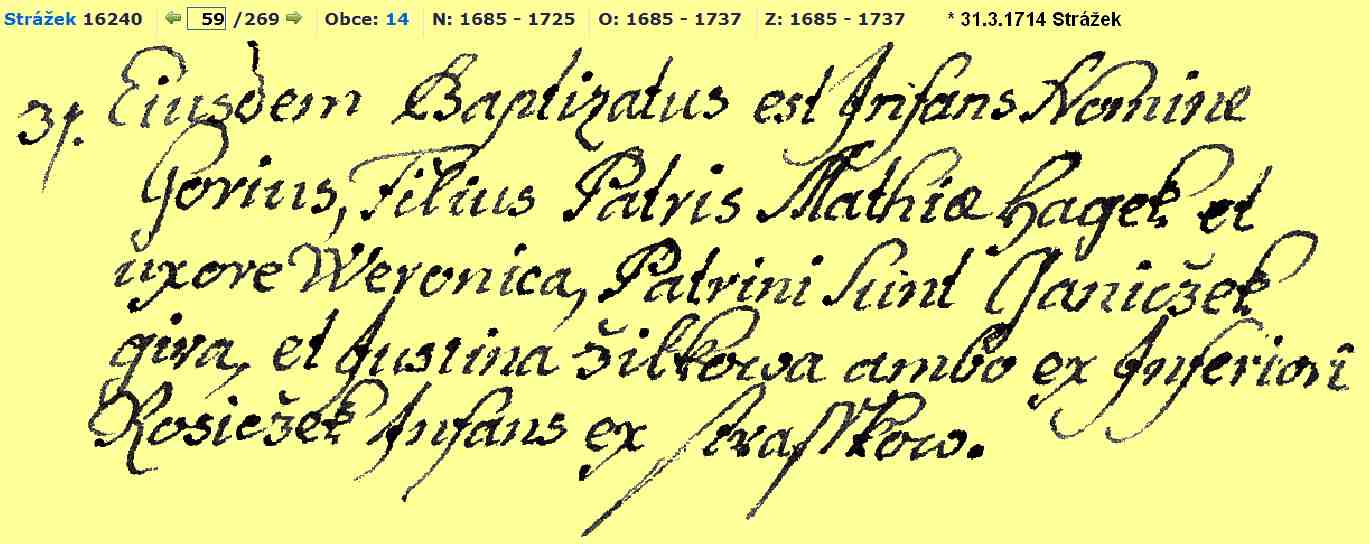 Strážek 16240 59 /269 Obce: 14 N: 1685 - 1725 O: 1685 - 1737 Z: 1685 - 1737 * 31.3.1714 Strážek
31. Eiusdem Baptizatus est Infans Nomine
Gorius, Filius Patris Mathiæ Hagek et
uxore Weronica, Patrini sunt Janiczek
gira, et Justina Žilkowa ambo ex Inferiori
Rosiczek Infans ex